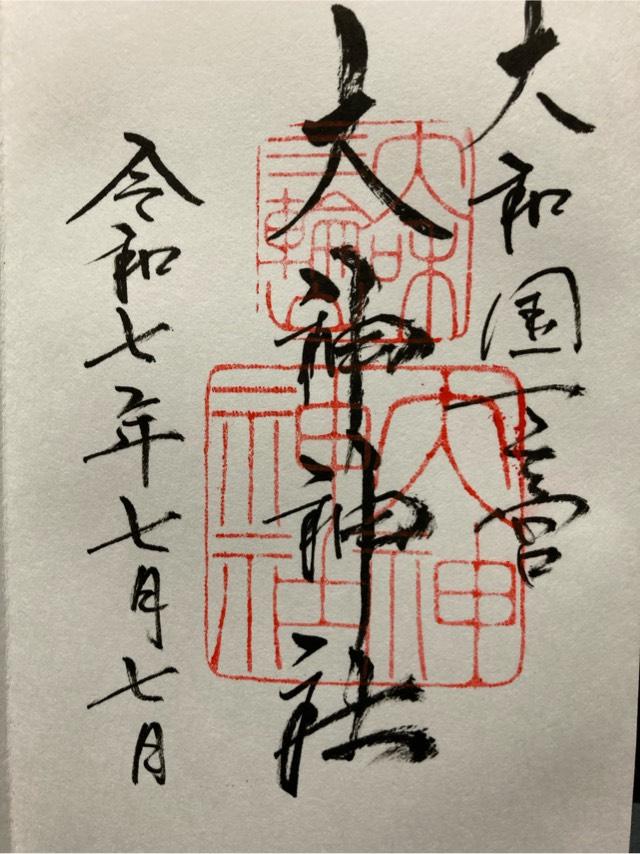 大和国一之宮
大神神社
令和七年七月七日
大神
神社